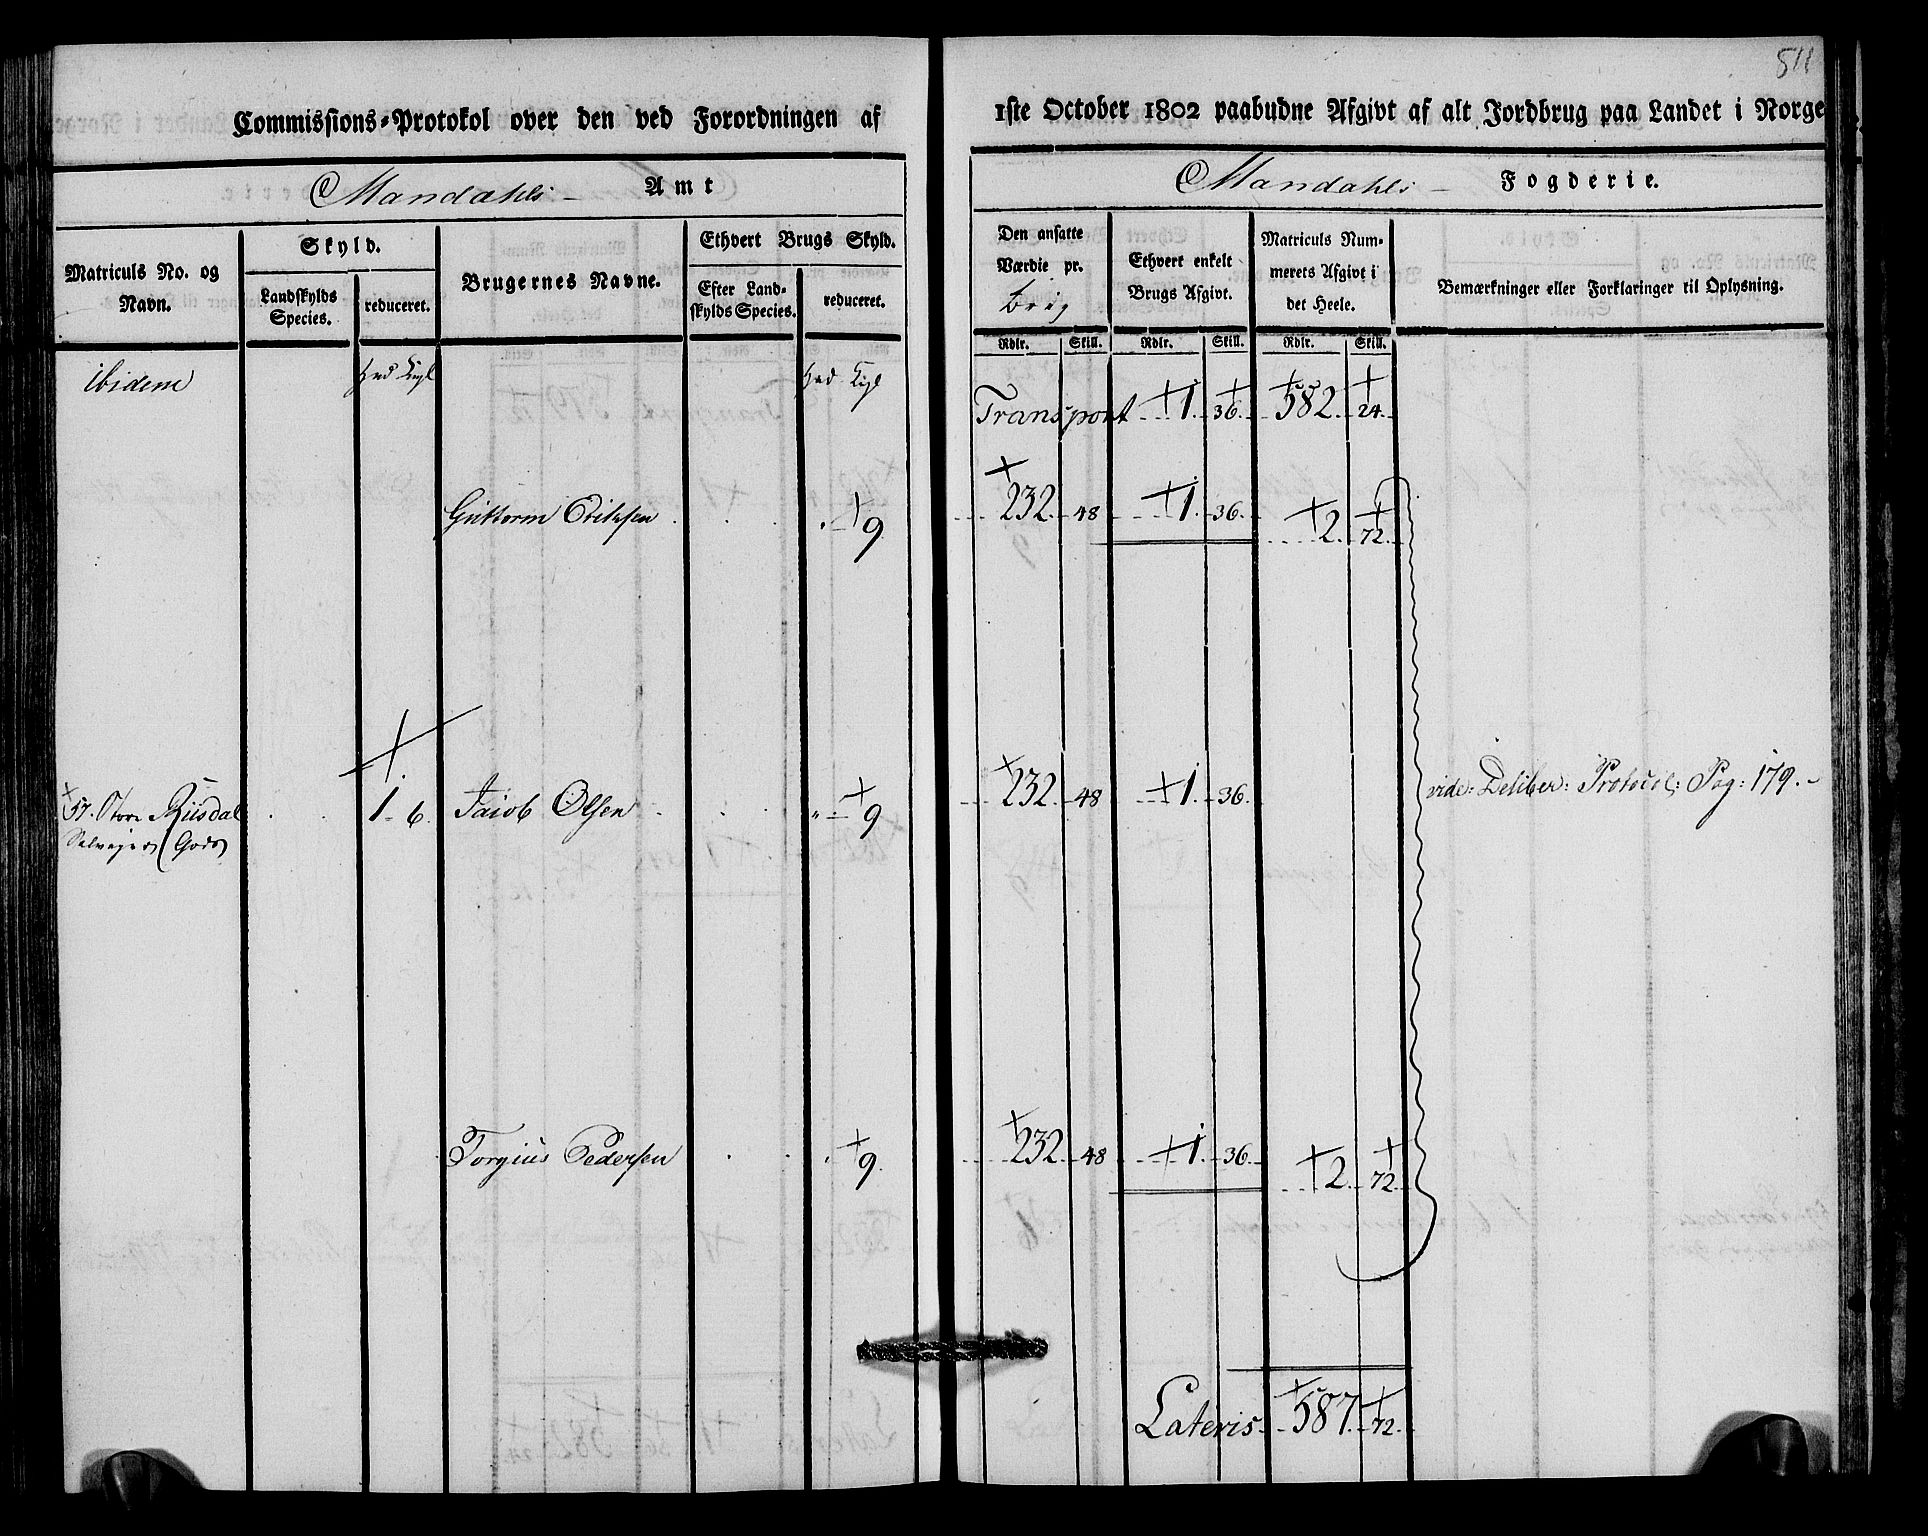 511
Commissions-Protokol over den ved Forordningen af 1ste October 1802 paabudne Afgivt af alt Jordbrug paa Landet i Norge
Mandahls - Amt
Mandahls - Fogderie.
Matriculs No. og Navn.
Skyld.
Landskylds Species.
reduceret.
Brugernes Navne.
Ethvert Brugs Skyld.
Efter Landskylds Species.
reduceret.
Den ansatte Værdie pr.
Ethvert enkelt Brugs Afgivt.
Matriculs Nummerets Afgivt i det Heele.
Bemærkninger eller Forklaringer til Oplysning.
Rdlr. Skill. Rdlr. Skill. Rdlr. Skill.
ibidem
Transport 1. 36. 582. 24.
Guttorm Eriksen 9 232. 48 1. 36. 2. 72.
57. Store Riisdal 1. 6. Jacob Olsen 9 232. 48 1. 36. vide: Deliber: Protocol: Pag: 179.-
Selveier Gods
Torgius Pedersen 9 232. 48 1. 36. 2. 72.
Lateris 587. 72.